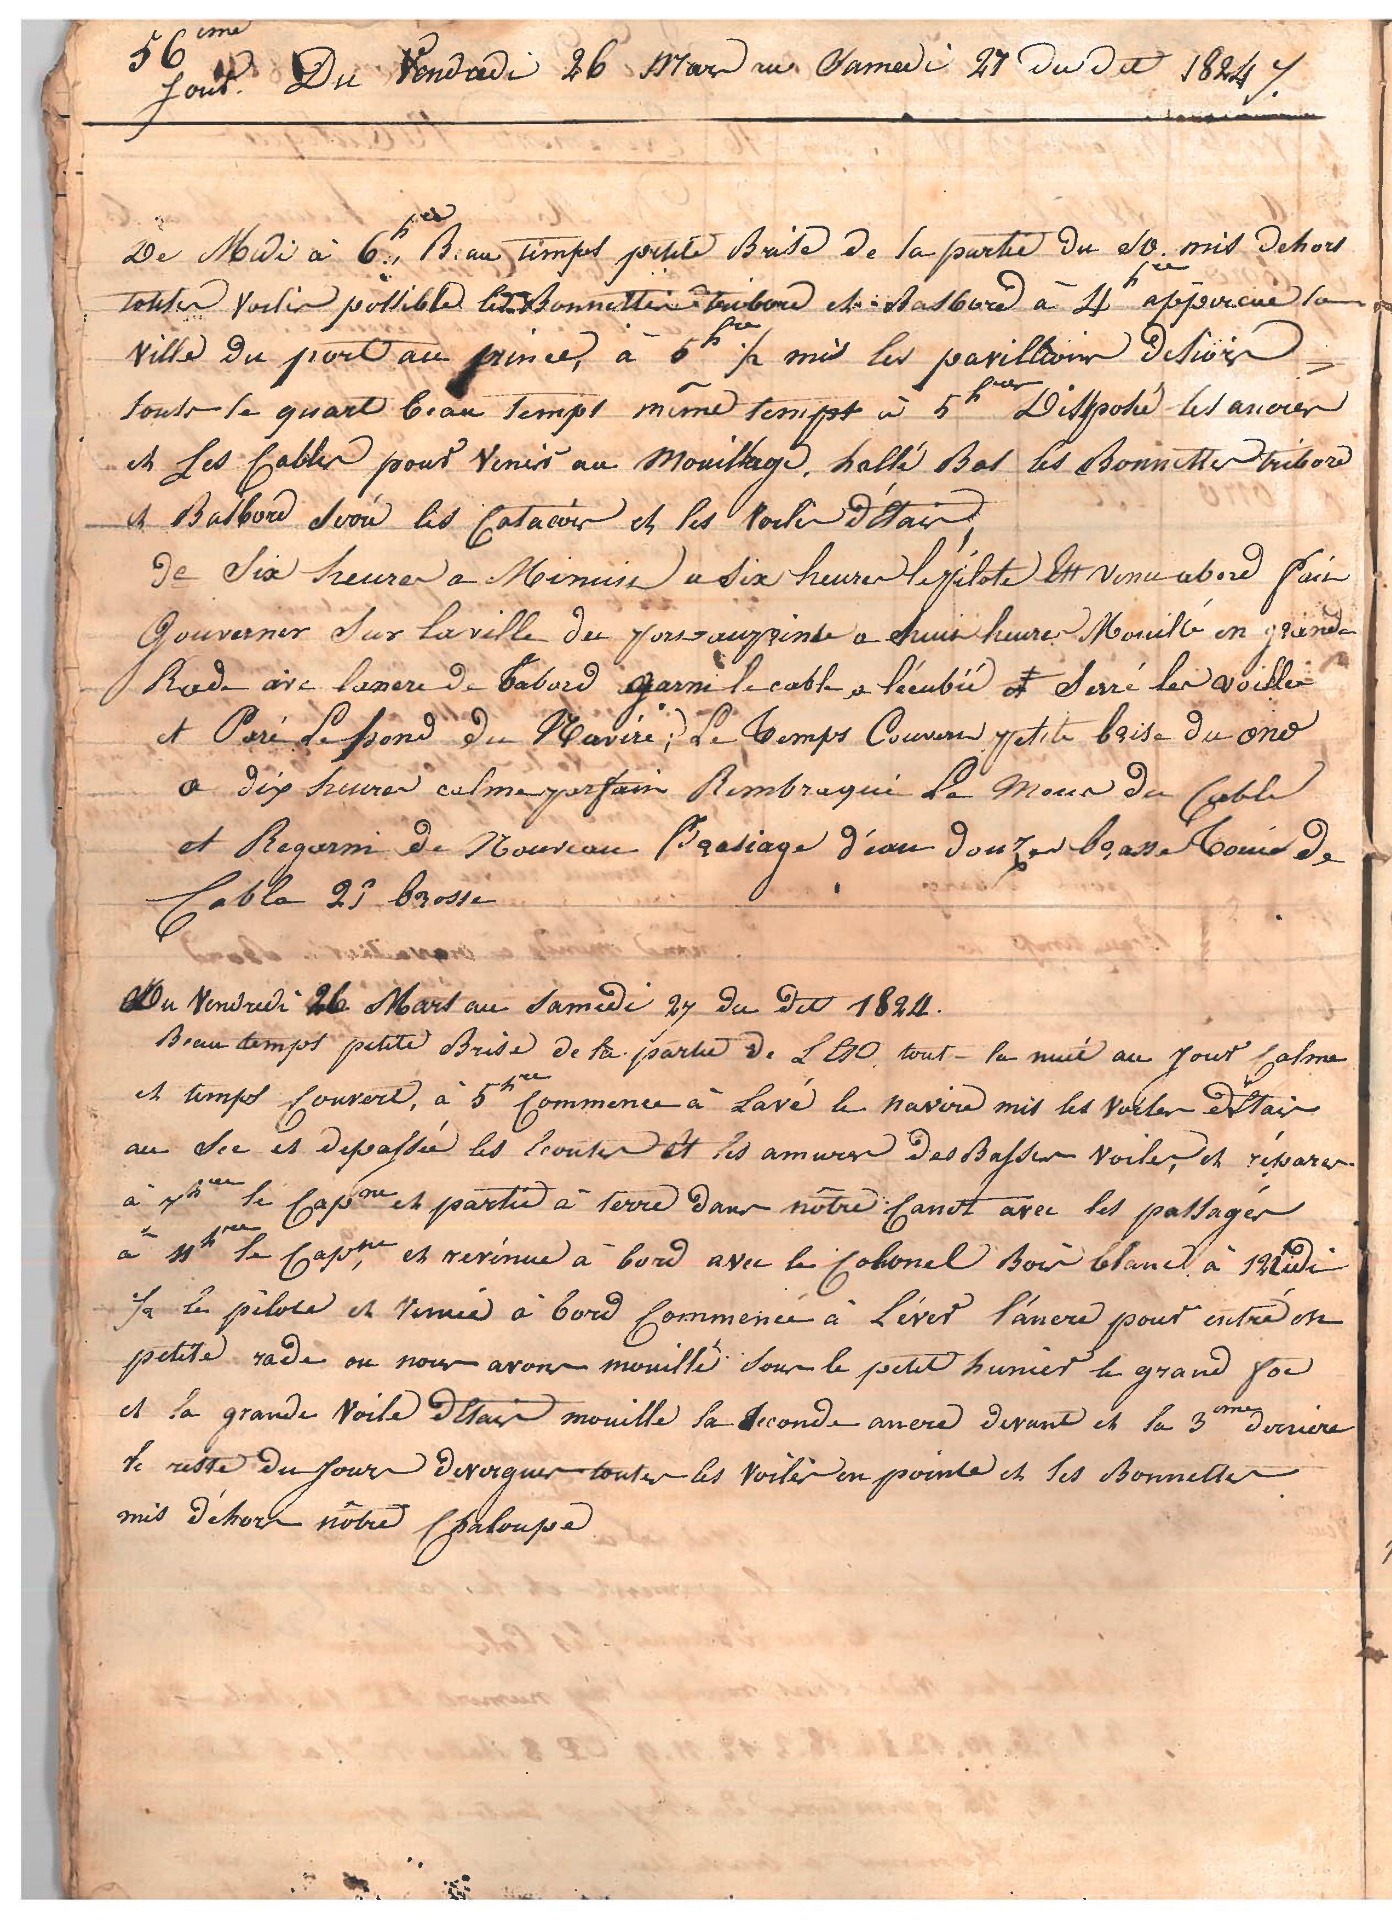 56 ème
Jour. Du Vendredi 26 Mars au Samedi 27 du dit 1824
De Midi à 6 hres Beau temps petite Brise de la partie du SO. mis dehors
toutes voiles possible les Bonnettes tribord et Basbord à 4 hres apperçue la
ville du port au prince, à 5 hres ½ mis les pavillions dehors
touts le quart beau temps même temps à 5 hres Disposé les ancres
et Les Cables pour venir au Mouillage, hallé Bas les Bonnettes tribord
et Basbord Séré les Catacois et les voiles d'Etais,
de Six heures a Minuis a six heures le pilote Est venu abord fair
Gouverner Sur la ville du port au prince a huis heures Mouillé en grande
Rade avec lancre de Tabord garni le cable a lécubié et Serré les voilles
et Paré Le fond du Navire; Le Temps Couvers petite brise du ONO
a dix heures calme parfain Rembraqué Le Mous du Cable
et Regarni de Nouveau Brasiage d'éau douzes brasse Touée de
Cable 25 brasse
Du Vendredi 26 Mars au Samedi 27 du dit 1824.
Beau temps petite Brise de la partie de L'ESO. tout la nuié au jour Calme
et temps Couvert, à 5 hres Commence à Lavé le navire mis les voiles d'Etais
au Sec et depassée les Ecoutes et les amures des Basses voiles, et réparer
à 7 hres le Capne et partie à terre dans nôtre Canot avec les passagés
à 11 hres le Capne et revénue à bord avec le Colonel Bois blanc à 12 Midi
½ le pilote et venué à bord Commencé à Léver l'ancre pour entré en
petite rade ou nous avons mouillé Sous le petit hunier le grand foc
et la grande voile d'Etais mouille la Seconde ancre devant et la 3 ème derriere
le reste du Jour devergues toutes les voiles en pointe et les Bonnettes
mis déhors nôtre Chaloupe